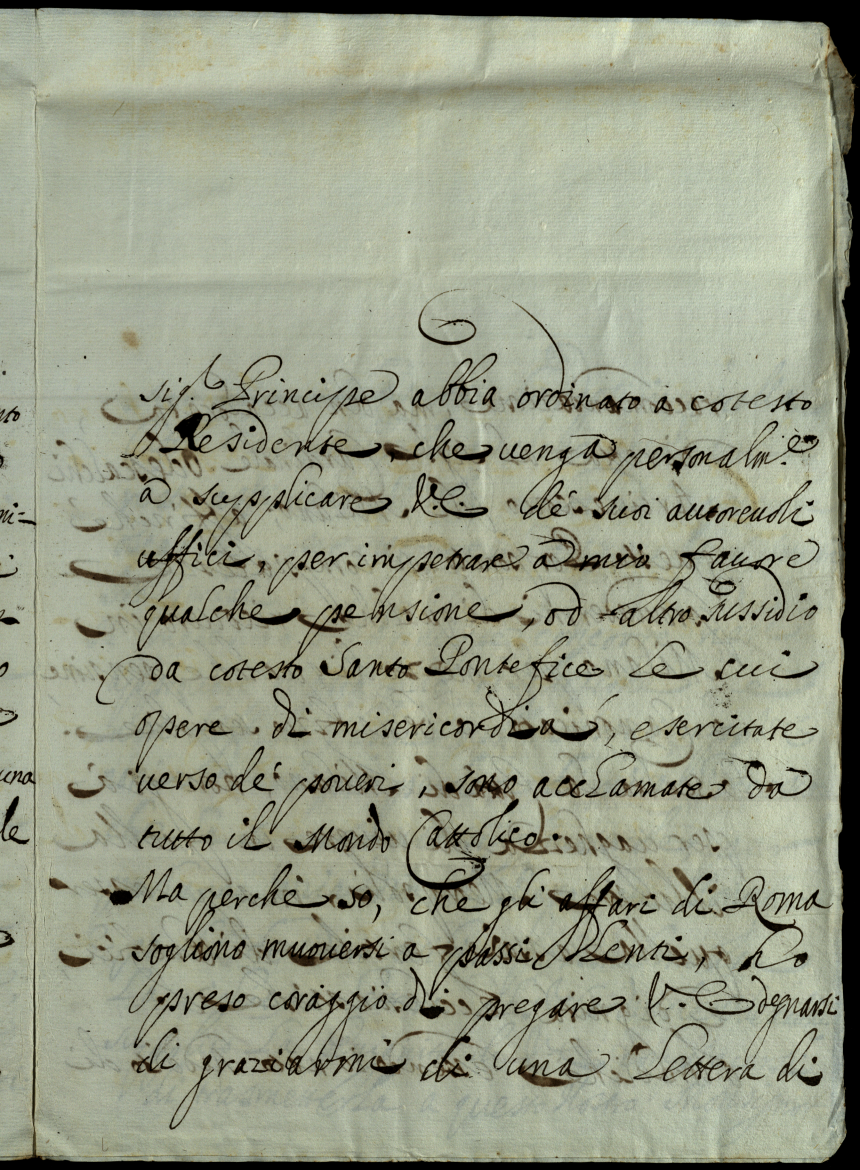 sig.r Principe abbia ordinato a cotesto
Residente, che venga personalm.e
à supplicare V.E. de' suoi autorevoli
uffici, per impetrare à mio favore
qualche pensione, od altro sussidio
da cotesto Santo Pontefice le cui
opere di misericordia, esercitate
verso de' poveri, sono acclamate da
tutto il Mondo Cattolico.
Ma perchè so, che gli affari di Roma
sogliono muoversi a passi lenti, ho
preso coraggio di pregare V.E. degnarsi
di graziarmi di una Lettera di